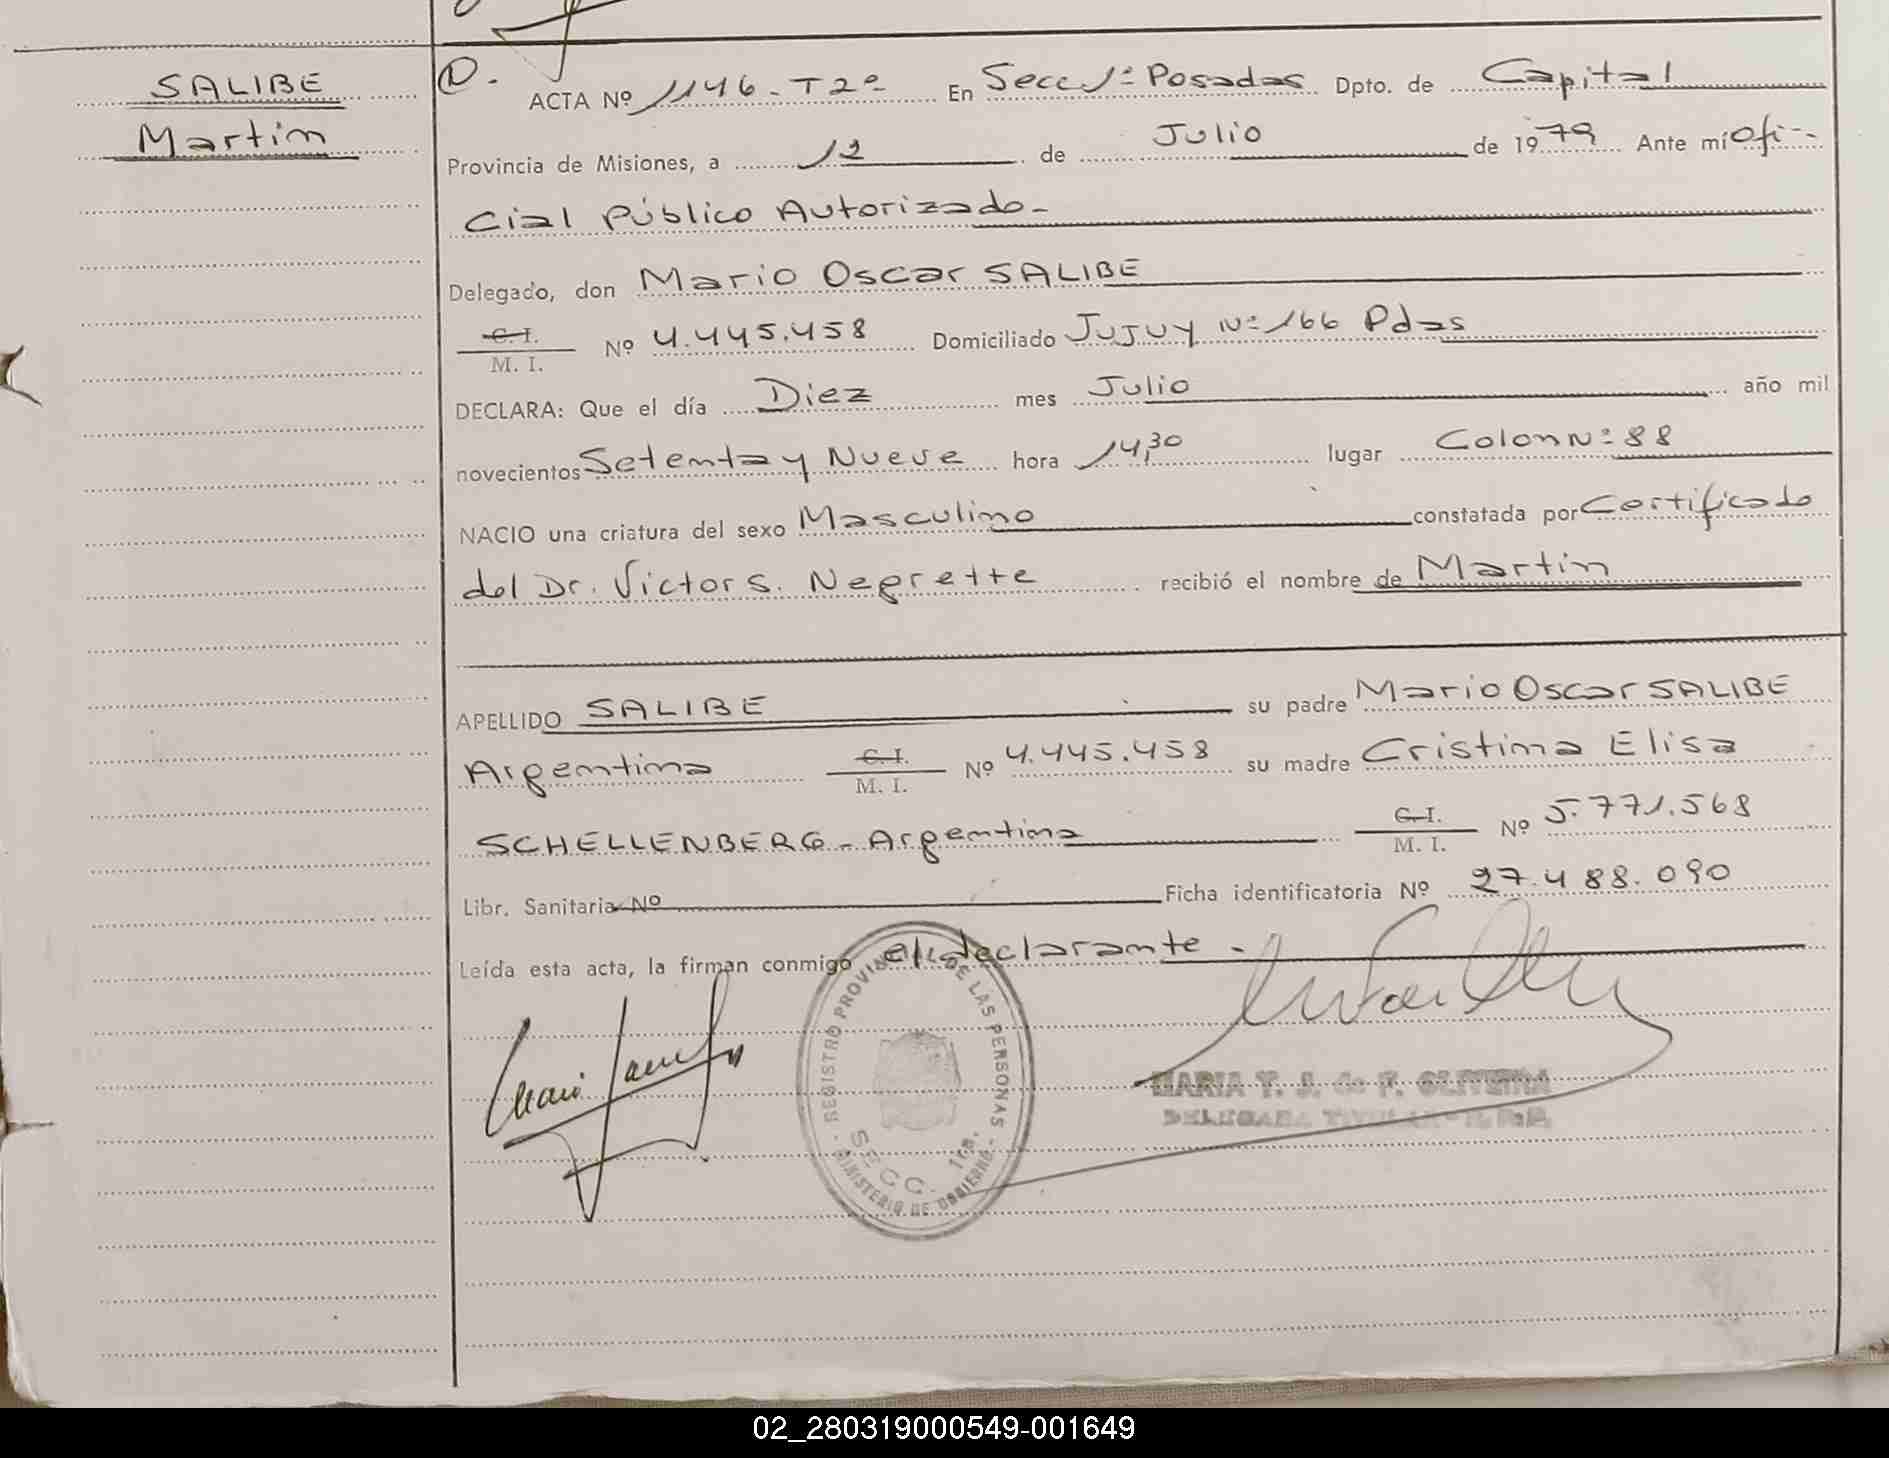 SALIBE
Martin
D.
ACTA Nº 1146-T2º En Secc 1ª Posadas Dpto. de Capital
Provincia de Misiones, a 12 de Julio de 1979 Ante mí Ofi-
cial Público Autorizado-
Delegado, don Mario Oscar SALIBE
C. I.
M. I. Nº 4.445.458 Domiciliado Jujuy Nº 166 Pdas
DECLARA: Que el día Diez mes Julio año mil
novecientos Setenta y Nueve hora 14,30 lugar Colon Nº 88
NACIO una criatura del sexo Masculino constatada por Certificado
del Dr. Victor S. Negrette recibió el nombre de Martin
APELLIDO SALIBE su padre Mario Oscar SALIBE
Argentina C. I. M. I. Nº 4.445.458 su madre Cristina Elisa
SCHELLENBERG - Argentina C. I. M. I. Nº 5.771.568
Libr. Sanitaria Nº Ficha identificatoria Nº 27.488.090
Leída esta acta, la firman conmigo el declarante -
REGISTRO PROVINCIAL DE LAS PERSONAS
SECC. 1ra.
- MINISTERIO DE GOBIERNO -
MARIA T. J. de F. OLIVEIRA
DELEGADA TITULAR
02_280319000549-001649